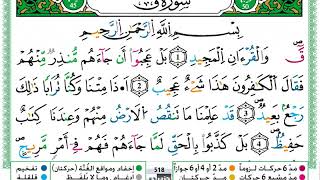 سُورَةُ ق
بِسْمِ ٱللَّهِ ٱلرَّحْمَٰنِ ٱلرَّحِيمِ
قٓ ۚ وَٱلْقُرْءَانِ ٱلْمَجِيدِ ١ بَلْ عَجِبُوٓا۟ أَن جَآءَهُم مُّنذِرٌ مِّنْهُمْ
فَقَالَ ٱلْكَٰفِرُونَ هَٰذَا شَىْءٌ عَجِيبٌ ٢ أَءِذَا مِتْنَا وَكُنَّا تُرَابًا ۖ ذَٰلِكَ
رَجْعٌۢ بَعِيدٌ ٣ قَدْ عَلِمْنَا مَا تَنقُصُ ٱلْأَرْضُ مِنْهُمْ ۖ وَعِندَنَا كِتَٰبٌ
حَفِيظٌۢ ٤ بَلْ كَذَّبُوا۟ بِٱلْحَقِّ لَمَّا جَآءَهُمْ فَهُمْ فِىٓ أَمْرٍ مَّرِيجٍ
مدّ 6 حركات لزوماً مدّ 2 أو 4 أو 6 جوازاً 518 إخفاء، ومواقع الغُنَّة (حركتان) تفخيم
مدّ حركتان إدغام، وما لا يُلفَظ قلقلة